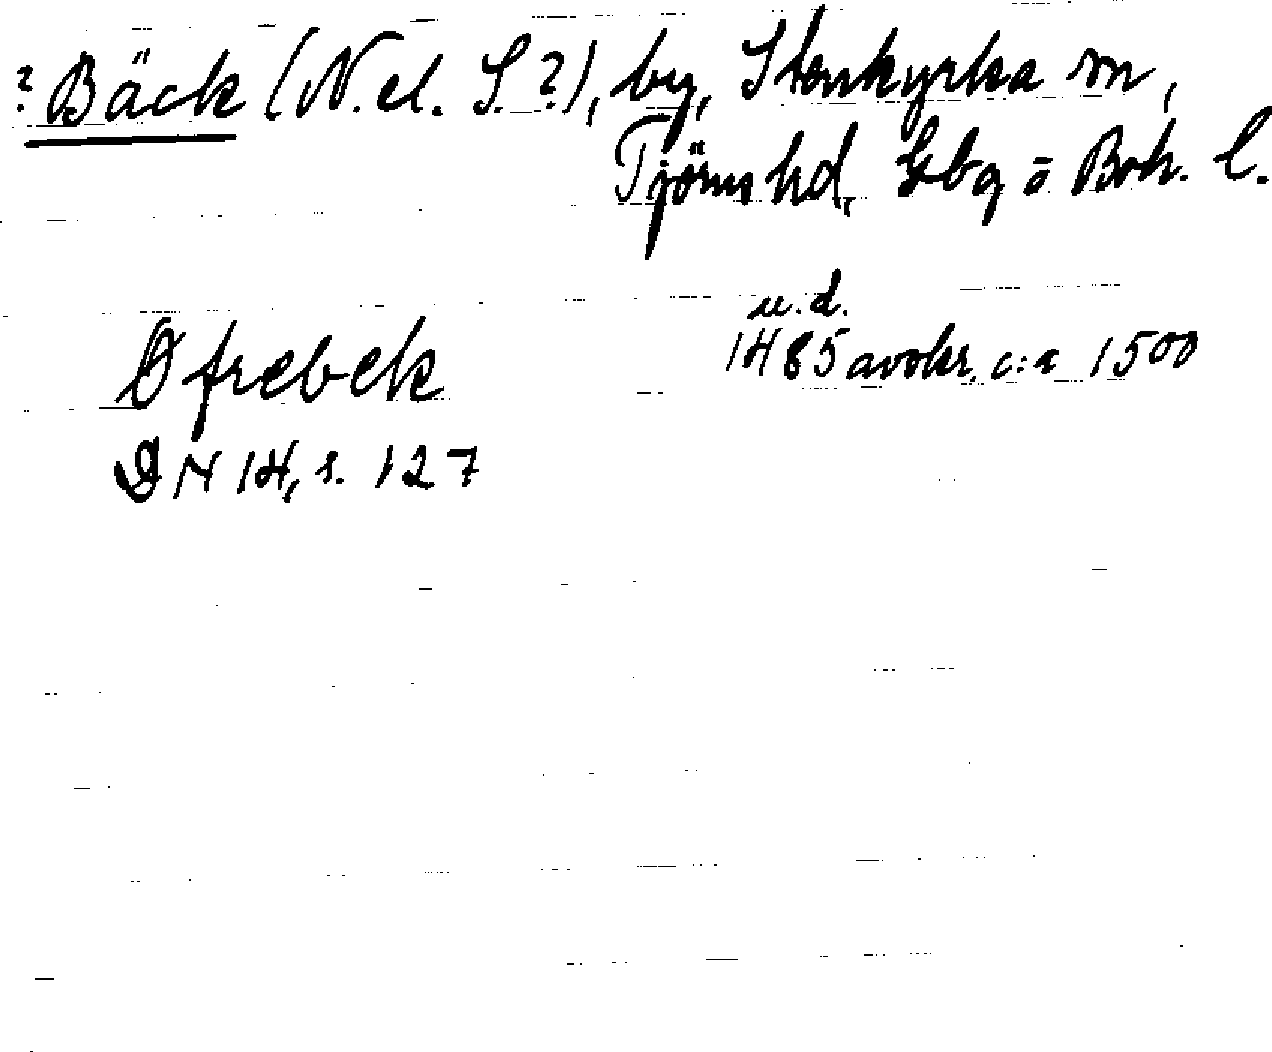 ? Bäck (N. el. S. ?), by, Stenkyrka sn,
Tjörns hd, Gbg o Boh. l.
u. d.
Øfrebek 1485 avskr. c:a 1500
DN 14, s. 127